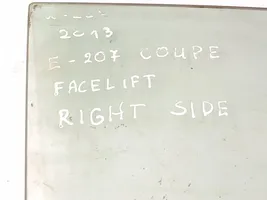 2013
E-207 COUPE
FACELIFT
RIGHT SIDE